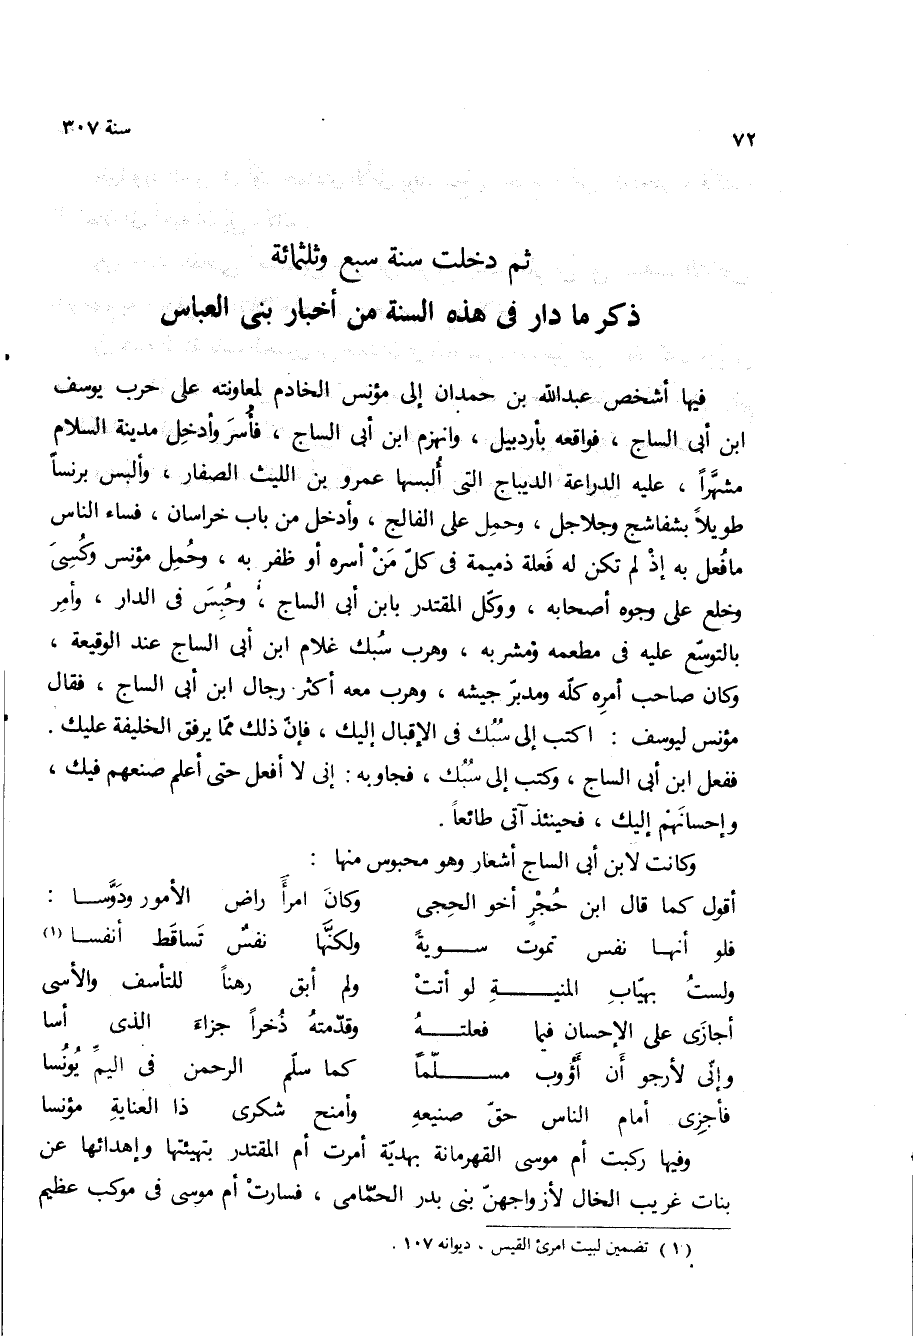 ٧٢
سنة ٣٠٧
ثم دخلت سنة سبع وثلثمائة
ذكر ما دار فى هذه السنة من أخبار بنى العباس
فيها أشخص عبدالله بن حمدان إلى مؤنس الخادم لمعاونته على حرب يوسف
ابن أبى الساج ، فواقعه بأردبيل ، وانهزم ابن أبى الساج ، فأُسرَ وأدخِل مدينة السلام
مشهَّراً ، عليه الدراعة الديباج التى أُلبسها عمرو بن الليث الصفار ، وألبس برنساً
طويلاً بشفاشج وجلاجل ، وحمِل على الفالج ، وأدخل من باب خراسان ، فساء الناس
مافُعل به إذْ لم تكن له فَعلة ذميمة فى كلّ مَنْ أسره أو ظفر به ، وحُمِل مؤنس وكُسِىَ
وخلع على وجوه أصحابه ، ووكّل المقتدر بابن أبى الساج ، وحُبِسَ فى الدار ، وأمِر
بالتوسّع عليه فى مطعمه ومشربه ، وهرب سُبك غلام ابن أبى الساج عند الوقيعة ،
وكان صاحب أمرِه كلّه ومدبرّ جيشه ، وهرب معه أكثر رجال ابن أبى الساج ، فقال
مؤنس ليوسف : اكتب إلى سُبُك فى الإقبال إليك ، فإنّ ذلك ممّا يرفق الخليفة عليك .
ففعل ابن أبى الساج ، وكتب إلى سُبُك ، فجاوبه : إنى لا أفعل حتى أعلم صنعهم فيك ،
وإحسانَهمْ إليك ، فحينئذ آتى طائعاً .
وكانت لابن أبى الساج أشعار وهو محبوس منها :
أقول كما قال ابن حُجْرٍ أخو الحِجى وكانَ امرأً راض الأمور ودَوَّسا :
فلو أنها نفس تموت سويةً ولكنَّها نفسٌ تَساقَط أنفسا (١)
ولستُ بهيّابِ المنيةِ لو أتتْ ولم أبق رهناً للتأسف والأسى
أجازَى على الإحسان فيما فعلتهُ وقدّمتهُ ذُخراً جزاءَ الذى أسا
وإنّى لأرجو أَن أَؤُوب مسلّماً كما سلّم الرحمن فى اليمِّ يُونُسا
فأجزِى أمام الناس حقّ صنيعهِ وأمنح شكرى ذا العنايةِ مؤنسا
وفيها ركبت أم موسى القهرمانة بهديّة أمرت أم المقتدر بتهيئتها وإهدائها عن
بنات غريب الخال لأزواجهنّ بنى بدر الحمّامى ، فسارتْ أم موسى فى موكب عظيم
(١) تضمين لبيت امرئ القيس ، ديوانه ١٠٧ .